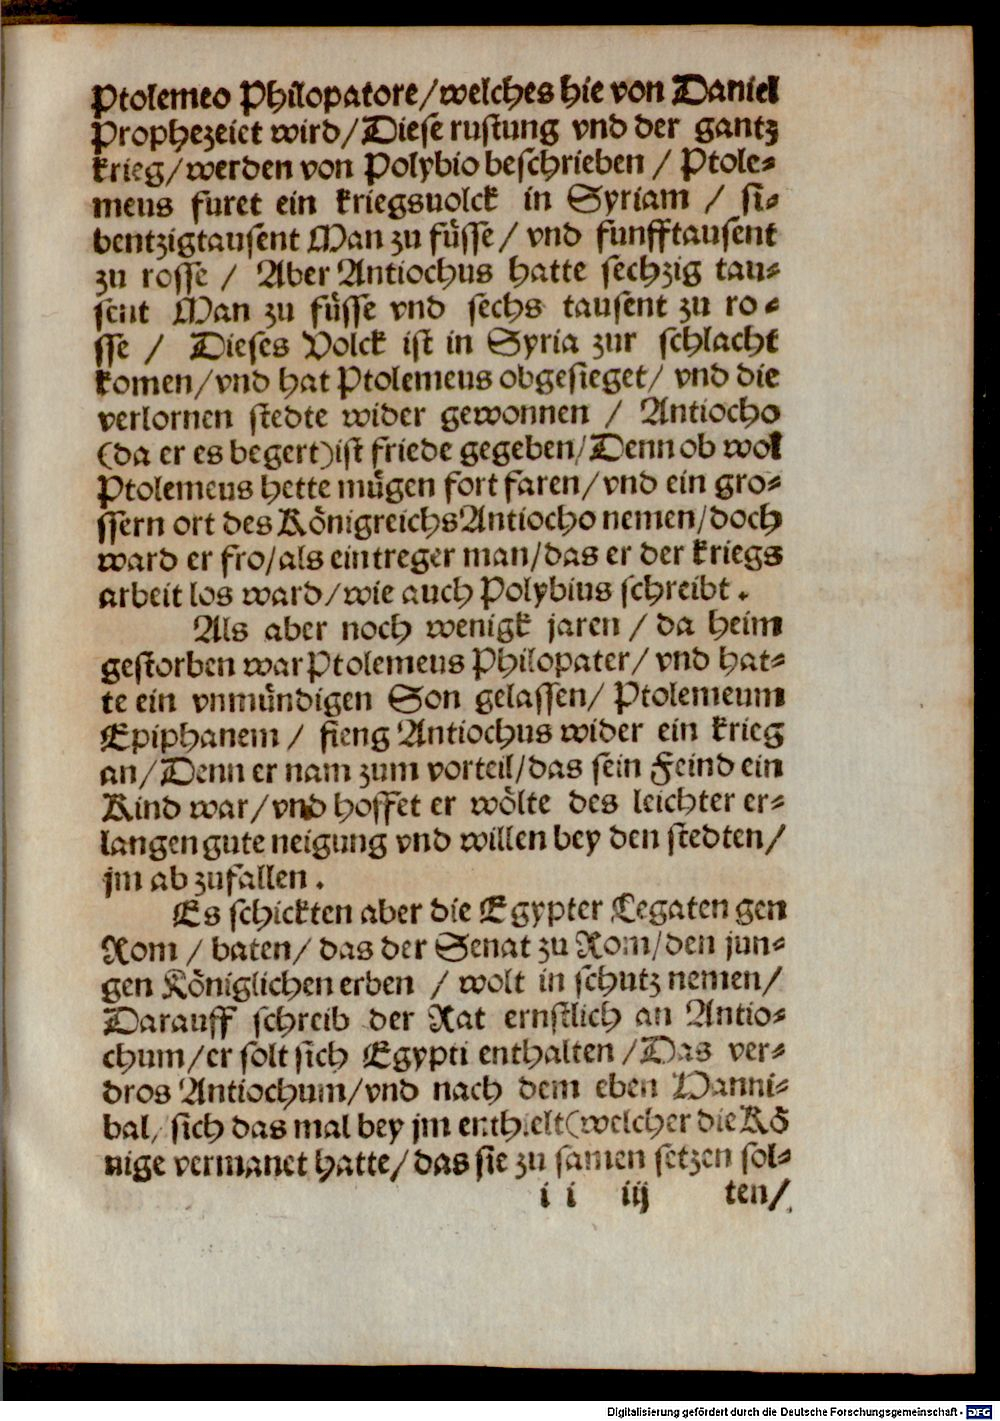 Ptolemeo Philopatore/welches hie von Daniel
Prophezeiet wird/Diese rustung vnd der gantz
krieg/werden von Polybio beschrieben / Ptole-
meus furet ein kriegsuolck in Syriam / si-
bentzigtausent Man zu füsse/ vnd funfftausent
zu rosse / Aber Antiochus hatte sechzig tau-
sent Man zu füsse vnd sechs tausent zu ro-
sse / Dieses Volck ist in Syria zur schlacht
komen/vnd hat Ptolemeus obgesieget/ vnd die
verlornen stedte wider gewonnen / Antiocho
(da er es begert)ist friede gegeben/Denn ob wol
Ptolemeus hette mügen fort faren/vnd ein gro-
ssern ort des Königreichs Antiocho nemen/doch
ward er fro/als ein treger man/das er der kriegs
arbeit los ward/wie auch Polybius schreibt.
Als aber noch wenigk jaren / da heim
gestorben war Ptolemeus Philopater/ vnd hat-
te ein vnmündigen Son gelassen/ Ptolemeum
Epiphanem / fieng Antiochus wider ein krieg
an/Denn er nam zum vorteil/das sein Feind ein
Kind war/vnd hoffet er wölte des leichter er-
langen gute neigung vnd willen bey den stedten/
jm ab zufallen.
Es schickten aber die Egypter Legaten gen
Rom / baten/ das der Senat zu Rom/den jun-
gen Königlichen erben / wolt in schutz nemen/
Darauff schreib der Rat ernstlich an Antio-
chum/er solt sich Egypti enthalten /Das ver-
dros Antiochum/vnd nach dem eben Hanni-
bal/ sich das mal bey jm enthielt(welcher die Kö
nige vermanet hatte/das sie zu samen setzen sol-
i i iij ten/
Digitalisierung gefördert durch die Deutsche Forschungsgemeinschaft - DFG